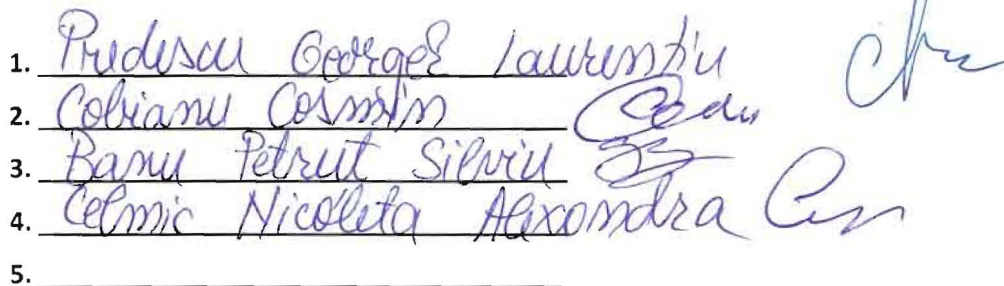 1. Predescu George Laurentiu
2. Cobianu Cosmin
3. Banu Petrut Silviu
4. Celmic Nicoleta Alexandra
5.